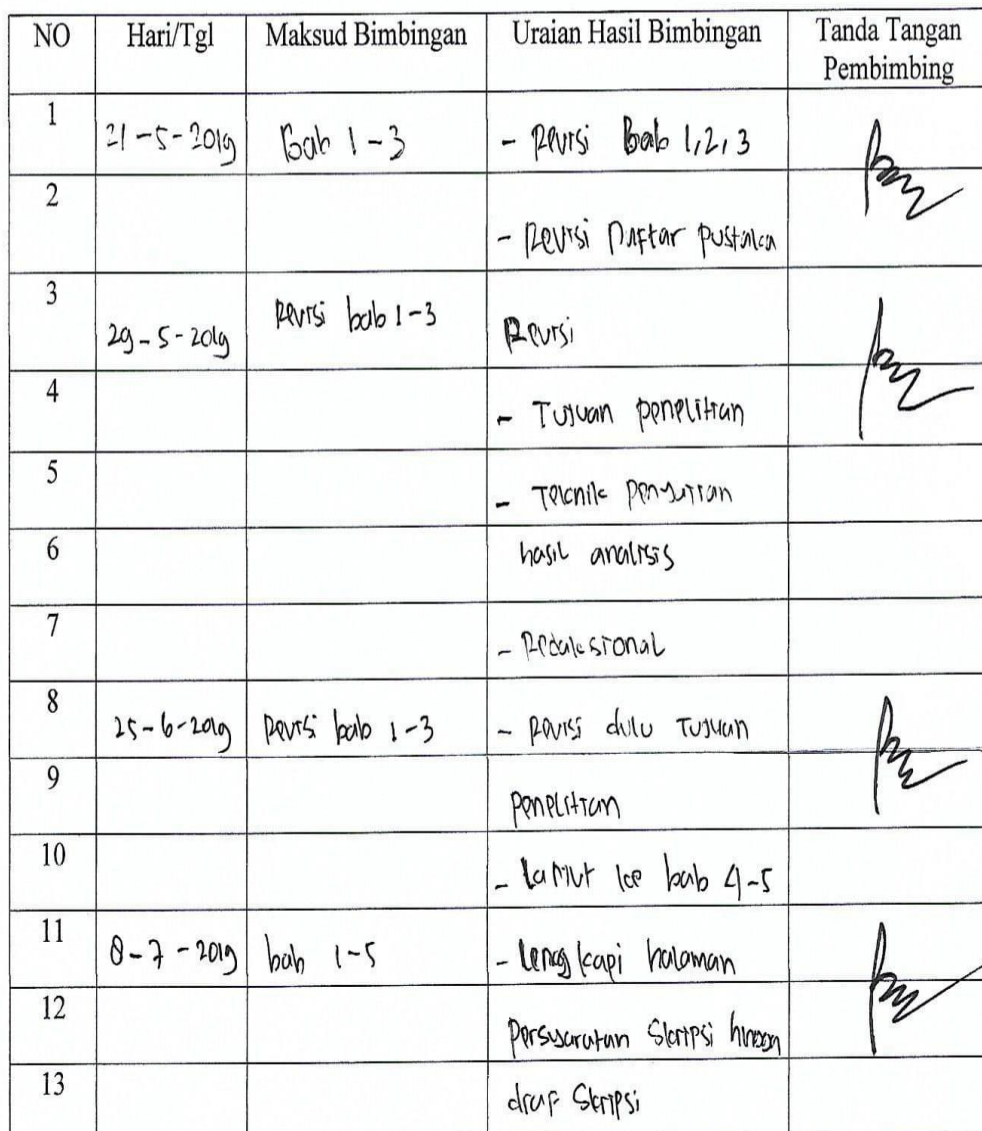 NO Hari/Tgl Maksud Bimbingan Uraian Hasil Bimbingan Tanda Tangan Pembimbing
1 21-5-2019 Bab 1-3 - Revisi Bab 1,2,3
2 - Revisi Daftar pustaka
3 29-5-2019 Revisi bab 1-3 Revisi
4 - Tujuan penelitian
5 - Teknik penyajian
6 hasil analisis
7 - Redaksional
8 25-6-2019 Revisi bab 1-3 - Revisi dulu Tujuan
9 penelitian
10 - Lanjut ke bab 4-5
11 8-7-2019 bab 1-5 - Lengkapi halaman
12 persyaratan Skripsi hingga
13 draf Skripsi